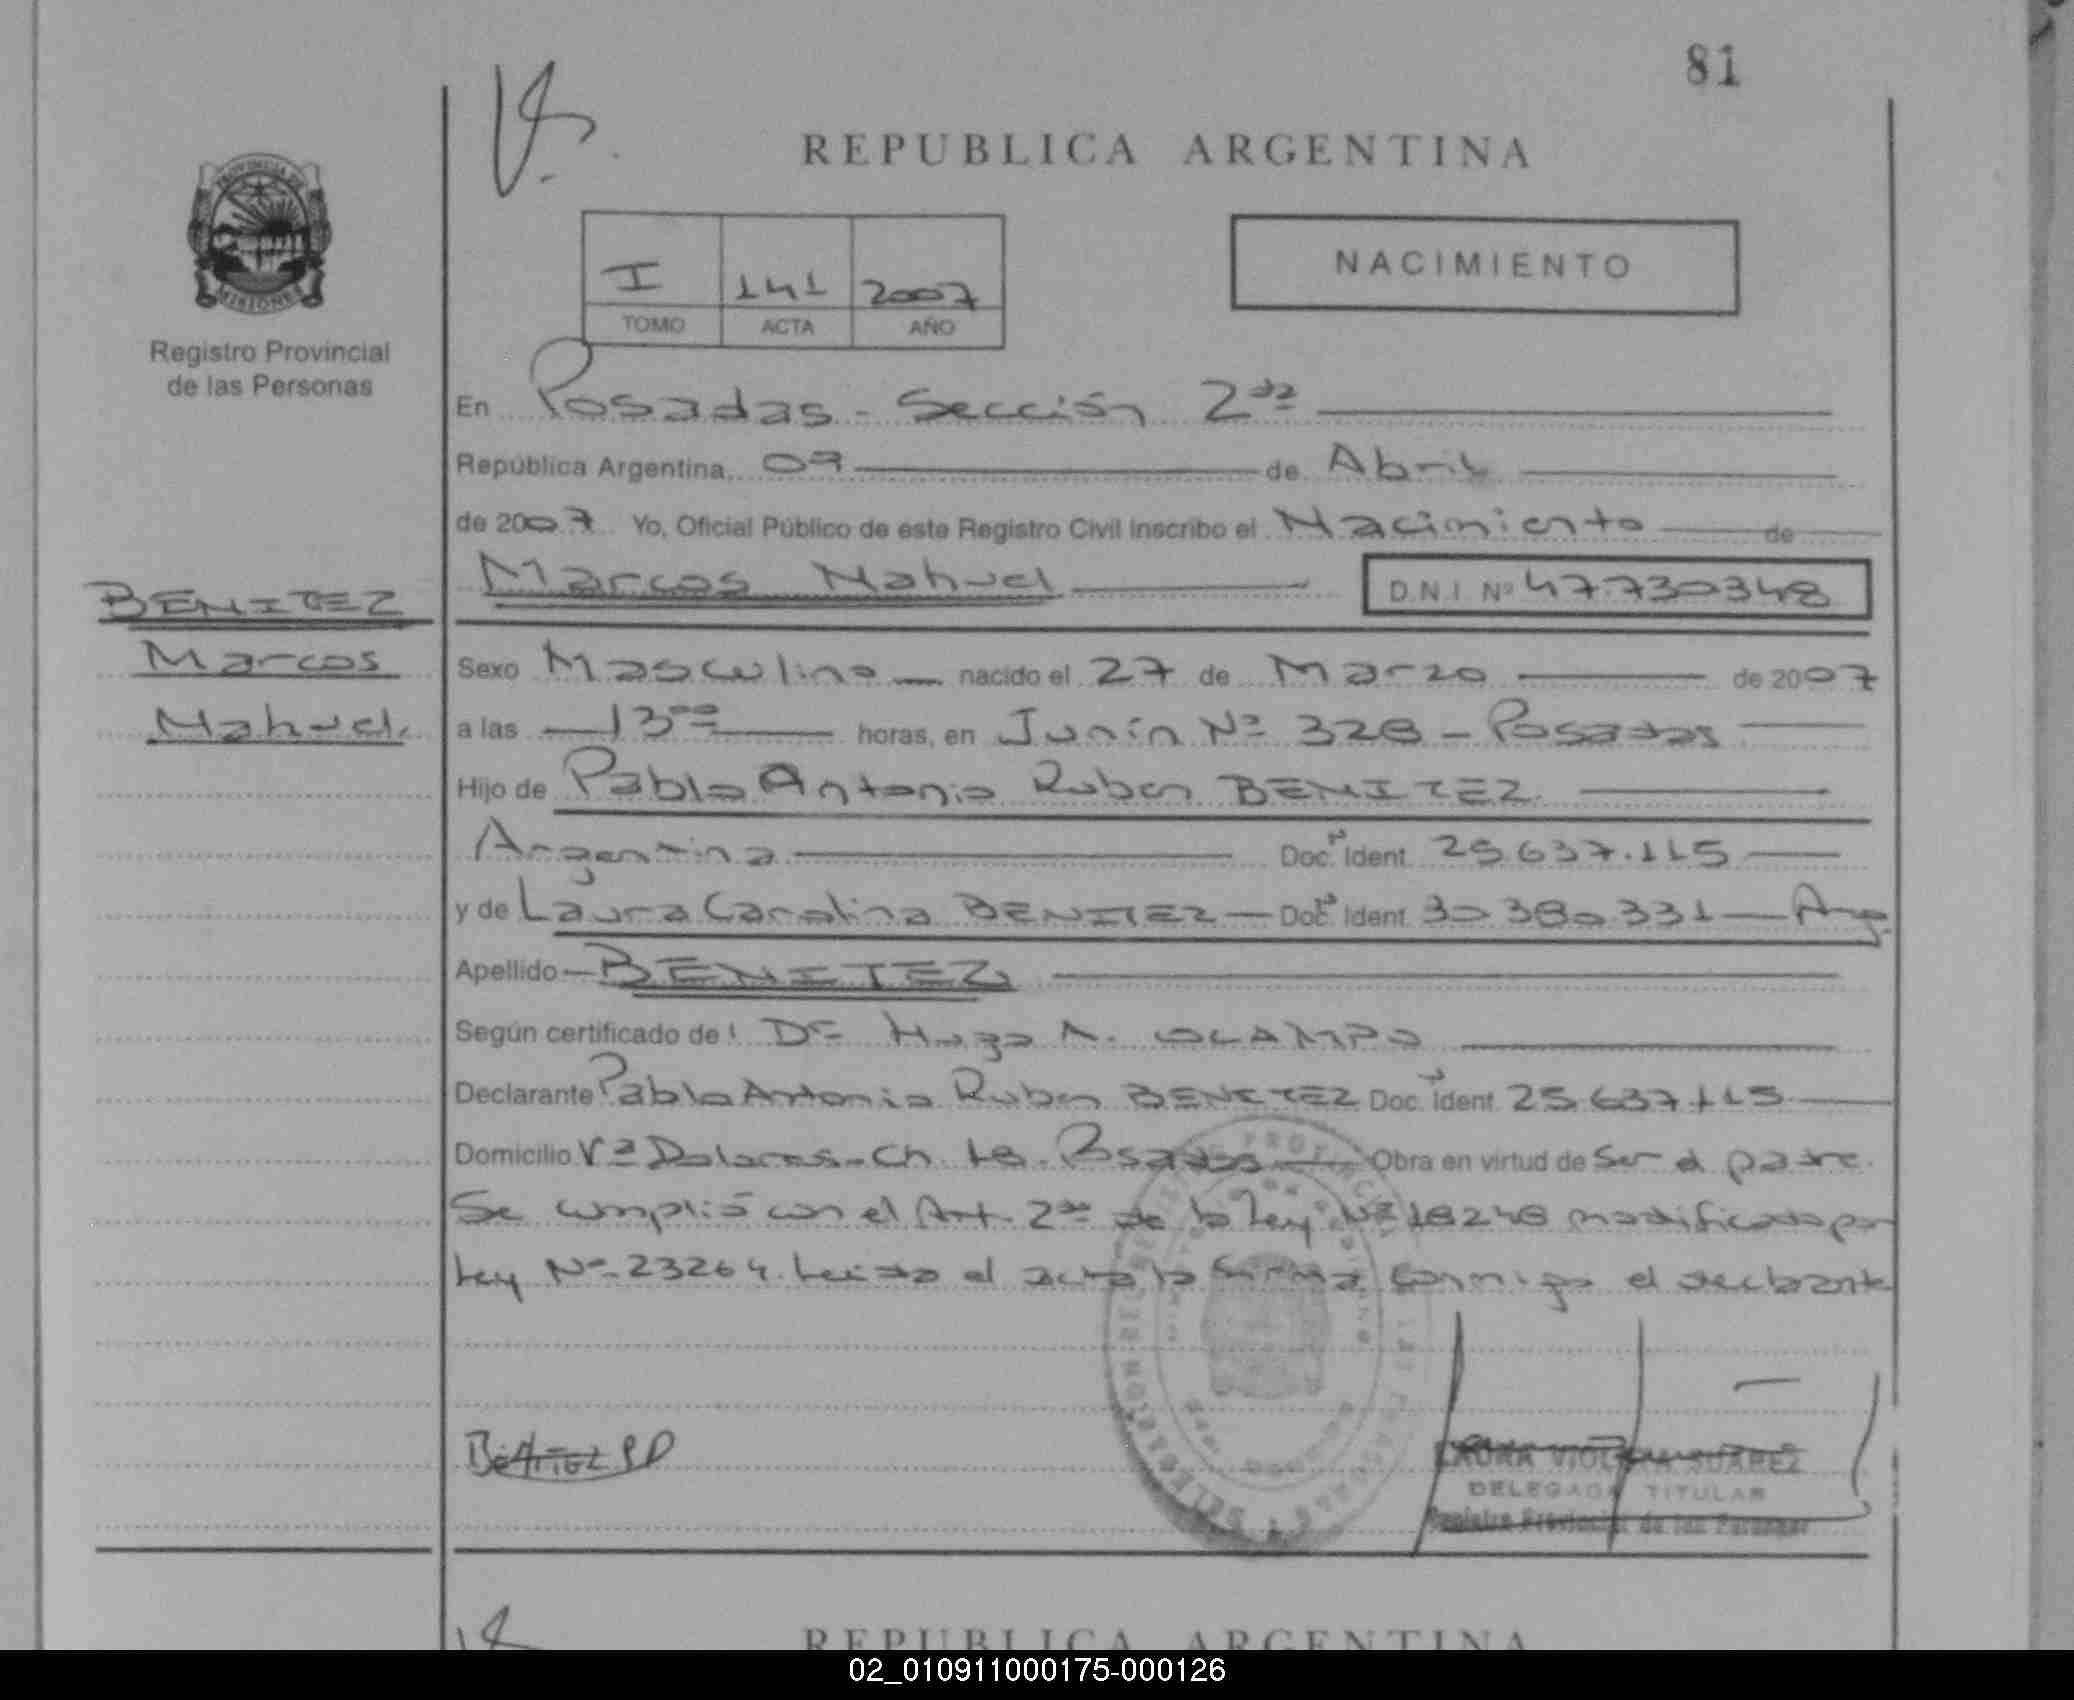 81
REPUBLICA ARGENTINA
PROVINCIA DE
MISIONES
Registro Provincial
de las Personas
NACIMIENTO
I 141 2007
TOMO ACTA AÑO
En Posadas - Sección 2da
República Argentina, 09 de Abril
de 2007 Yo, Oficial Público de este Registro Civil inscribo el Nacimiento de
Marcos Nahuel D.N.I. Nº 47.730348
BENITEZ
Marcos
Nahuel.
Sexo Masculino nacido el 27 de Marzo de 2007
a las 13 oo horas, en Junín Nº 328 - Posadas
Hijo de Pablo Antonio Ruben BENITEZ
Argentina Doc. Ident. 25.637.115
y de Laura Carolina BENITEZ - Doc. Ident. 30.380.331 - Arg.
Apellido BENITEZ
Según certificado de: Dr. Hugo A. OCAMPO
Declarante Pablo Antonio Ruben BENITEZ Doc. Ident. 25.637.115
Domicilio Vª Dolores - Ch Posadas Obra en virtud de ser el padre.
Se cumplió con el Art. 2do de la Ley Nº 18248 modificado por
Ley Nº 23264. Leida el acta la firma conmigo el declarante
BENITEZ PD
LAURA VIOLETA SUAREZ
DELEGADA TITULAR
Registro Provincial de las Personas
REPUBLICA ARGENTINA
02_010911000175-000126